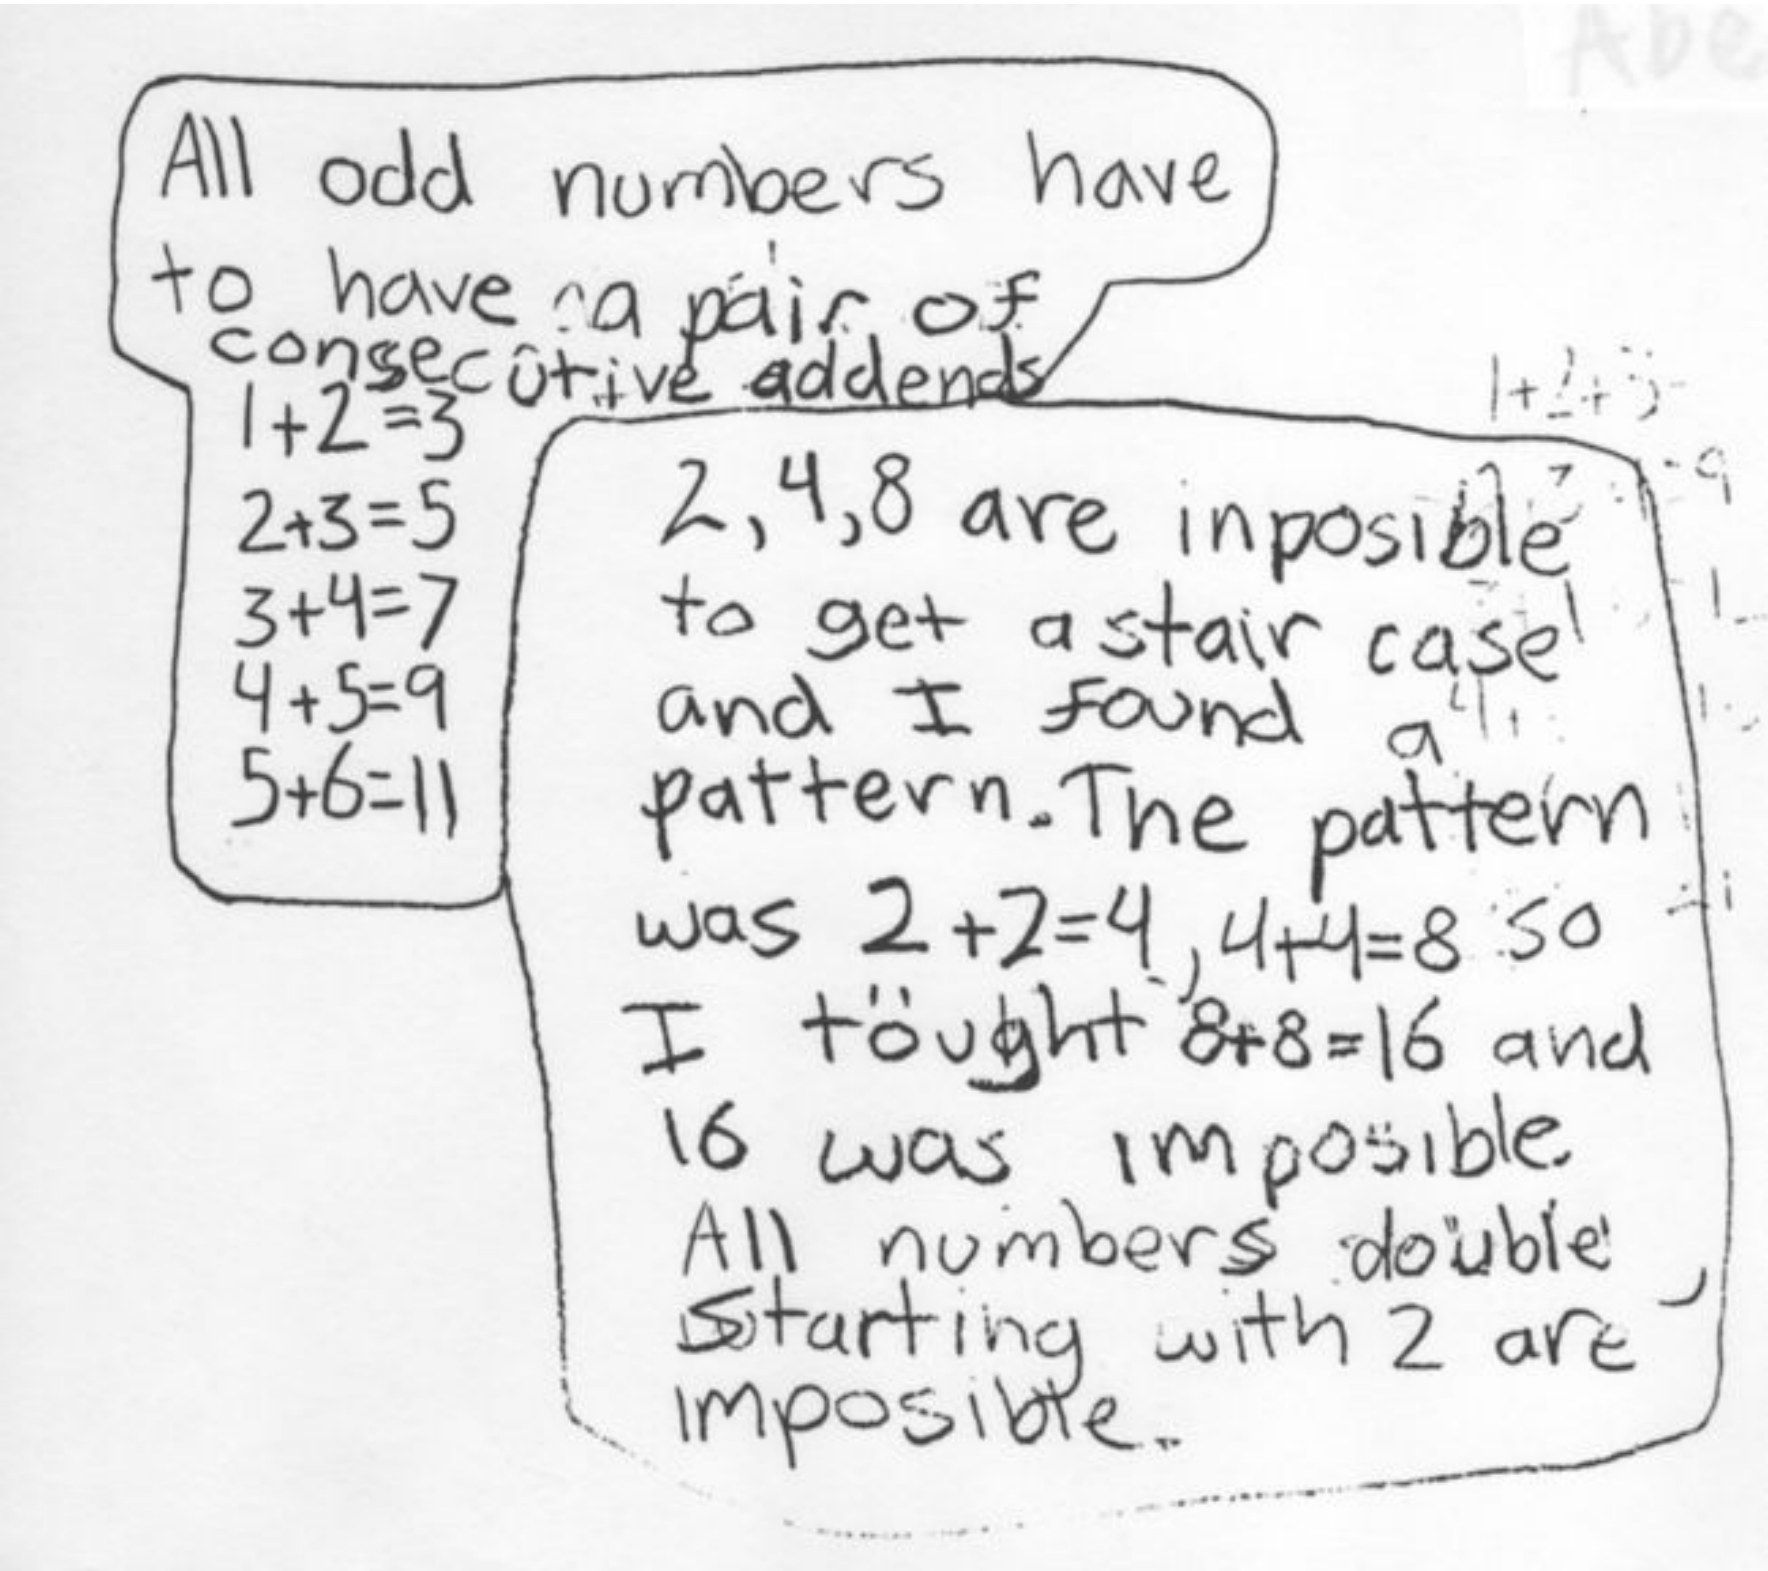 Abe
All odd numbers have
to have a pair of
consecutive addends
1+2=3
2+3=5
3+4=7
4+5=9
5+6=11
1+2+3
2,4,8 are inposible
to get a stair case
and I found a
pattern. The pattern
was 2+2=4, 4+4=8 so
I tought 8+8=16 and
16 was imposible
All numbers double
starting with 2 are
imposible.